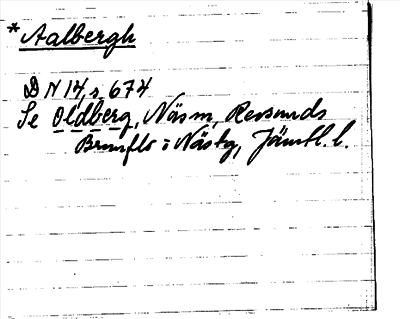 * Aalbergh
DN 14, s. 674
Se Oldberg, Näs m, Revsunds
Brunflo o Näsby, Jämtl. l.